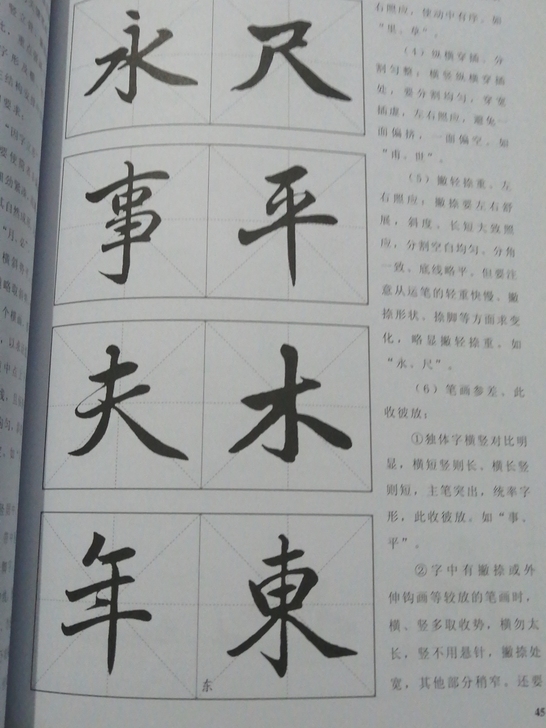 永尺
事平
夫木
年東
东
右照应，使动中有序。如
“里、草”。
（4）纵横穿插、分
割匀整：横竖纵横穿插
处，要分割均匀，穿宽
插虚，左右照应，避免一
面偏挤，一面偏空。如
“甫、世”。
（5）撇轻捺重、左
右照应：撇捺要左右舒
展，斜度、长短大致照
应，分割空白均匀、分角
一致、底线略平。但要注
意从运笔的轻重快慢、撇
捺形状、捺脚等方面求变
化，略显撇轻捺重。如
“永、尺”。
（6）笔画参差、此
收彼放：
①独体字横竖对比明
显，横短竖则长、横长竖
则短，主笔突出，统率字
形，此收彼放。如“事、
平”。
②字中有撇捺或外
伸钩画等较放的笔画时，
横、竖多取收势，横勿太
长，竖不用悬针，撇捺处
宽，其他部分稍窄。还要
45